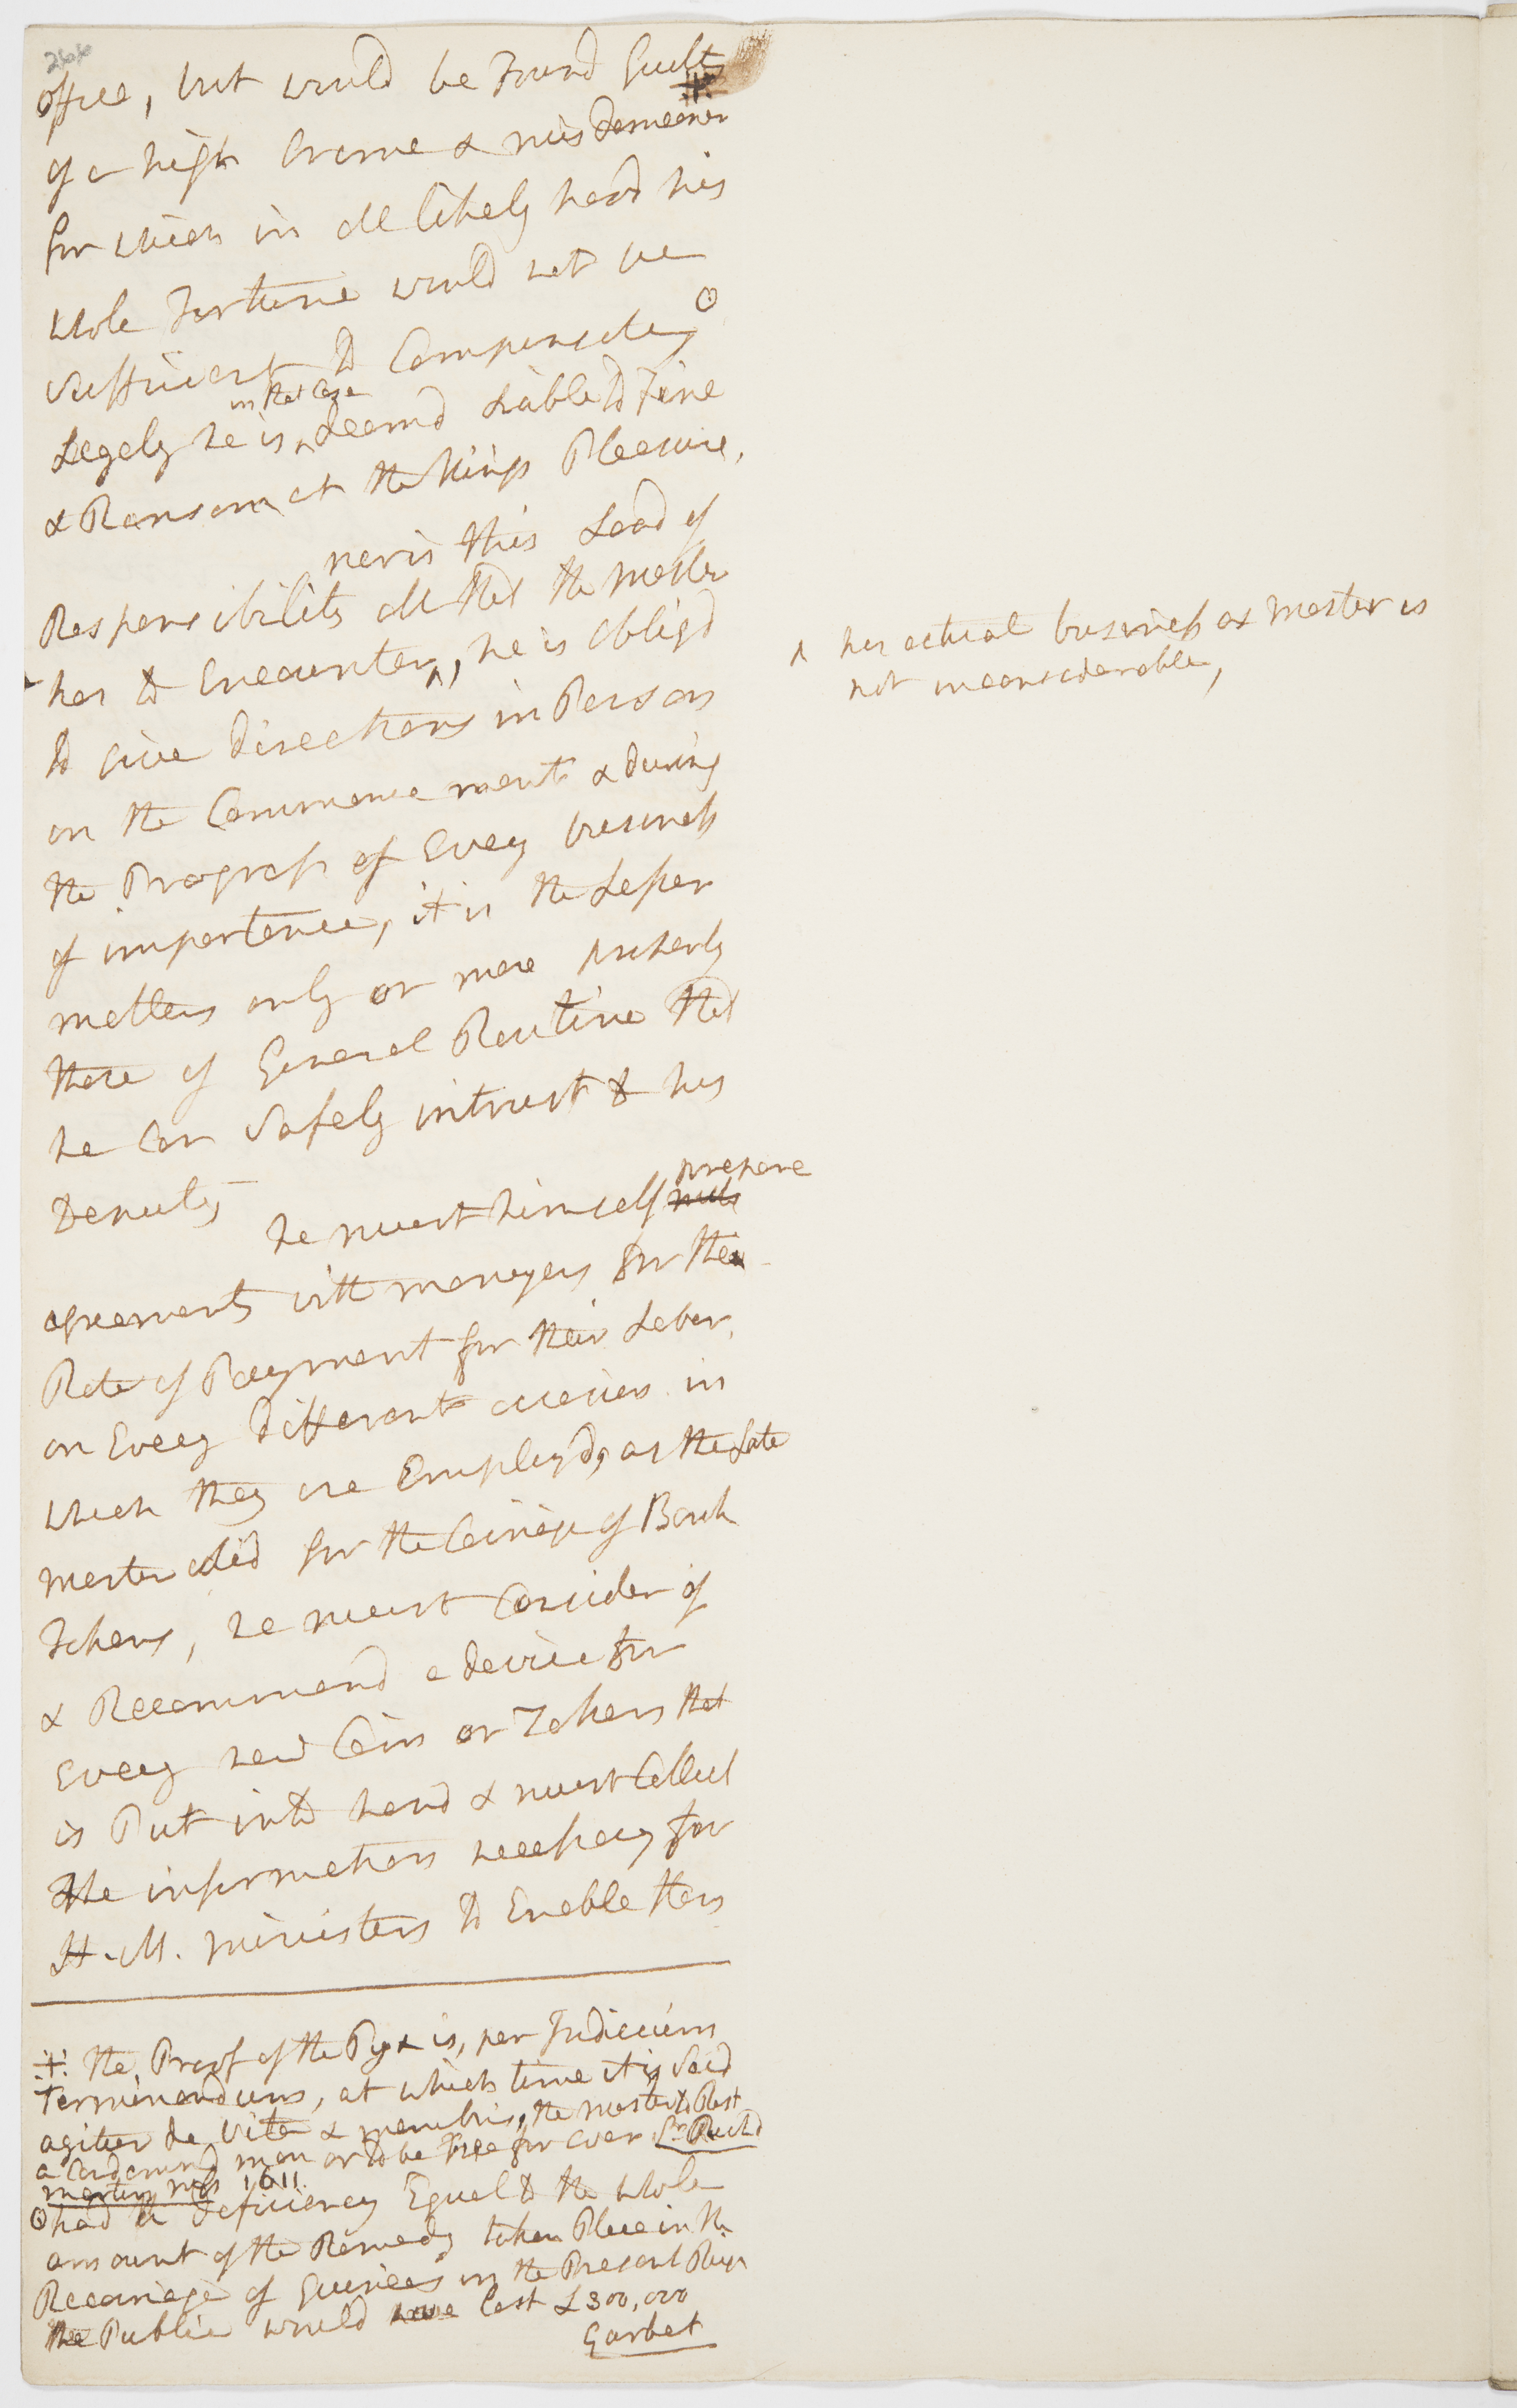 266
office, but would be Found Guilty
⁜
of a high Crime & misdemeaner
for which in all likely hood his
whole Fortune would not be
sufficient to Compensate, ʘ
in that Case
Legaly he is ^ deemd Liable to Fine
& Ransom at the Kings Pleasure,
nor is this Load of
Responsibility all that the Master
has to Encounter ^, he is obligd
^ his actual business as Master is
not inconsiderable,
to give directions in Person
on the Commencement & during
the Progress of Every business
of importance, it is the Lesser
matters only or more properly
those of General Routine that
he Can Safely intrust to his
Deputy
prepare
he must himself
agreements with moneyers for the
Rate of Payment for their Labor,
on Every different occasion in
which they are Employd, as the Late
Master did for the Coinage of Bank
Tokens, he must Consider of
& Recommend a device for
Every new Coin or Token that
is Put into hand & must Collect
the information necessary for
H. M. ministers to Enable them
⁜ The Proof of the Pyx is, per Judicium
Terminandum, at which time it is said
agitur de vita & membris, the master to Rest
a Condemnd man or to be Free for ever Sr. Richd
Martin MSS 1611.
ʘ had a deficiency Equal to the whole
amount of the Remedy taken Place in the
Recoinage of Guineas in the Present Reign
the Public would have Lost £300,000
Garbet